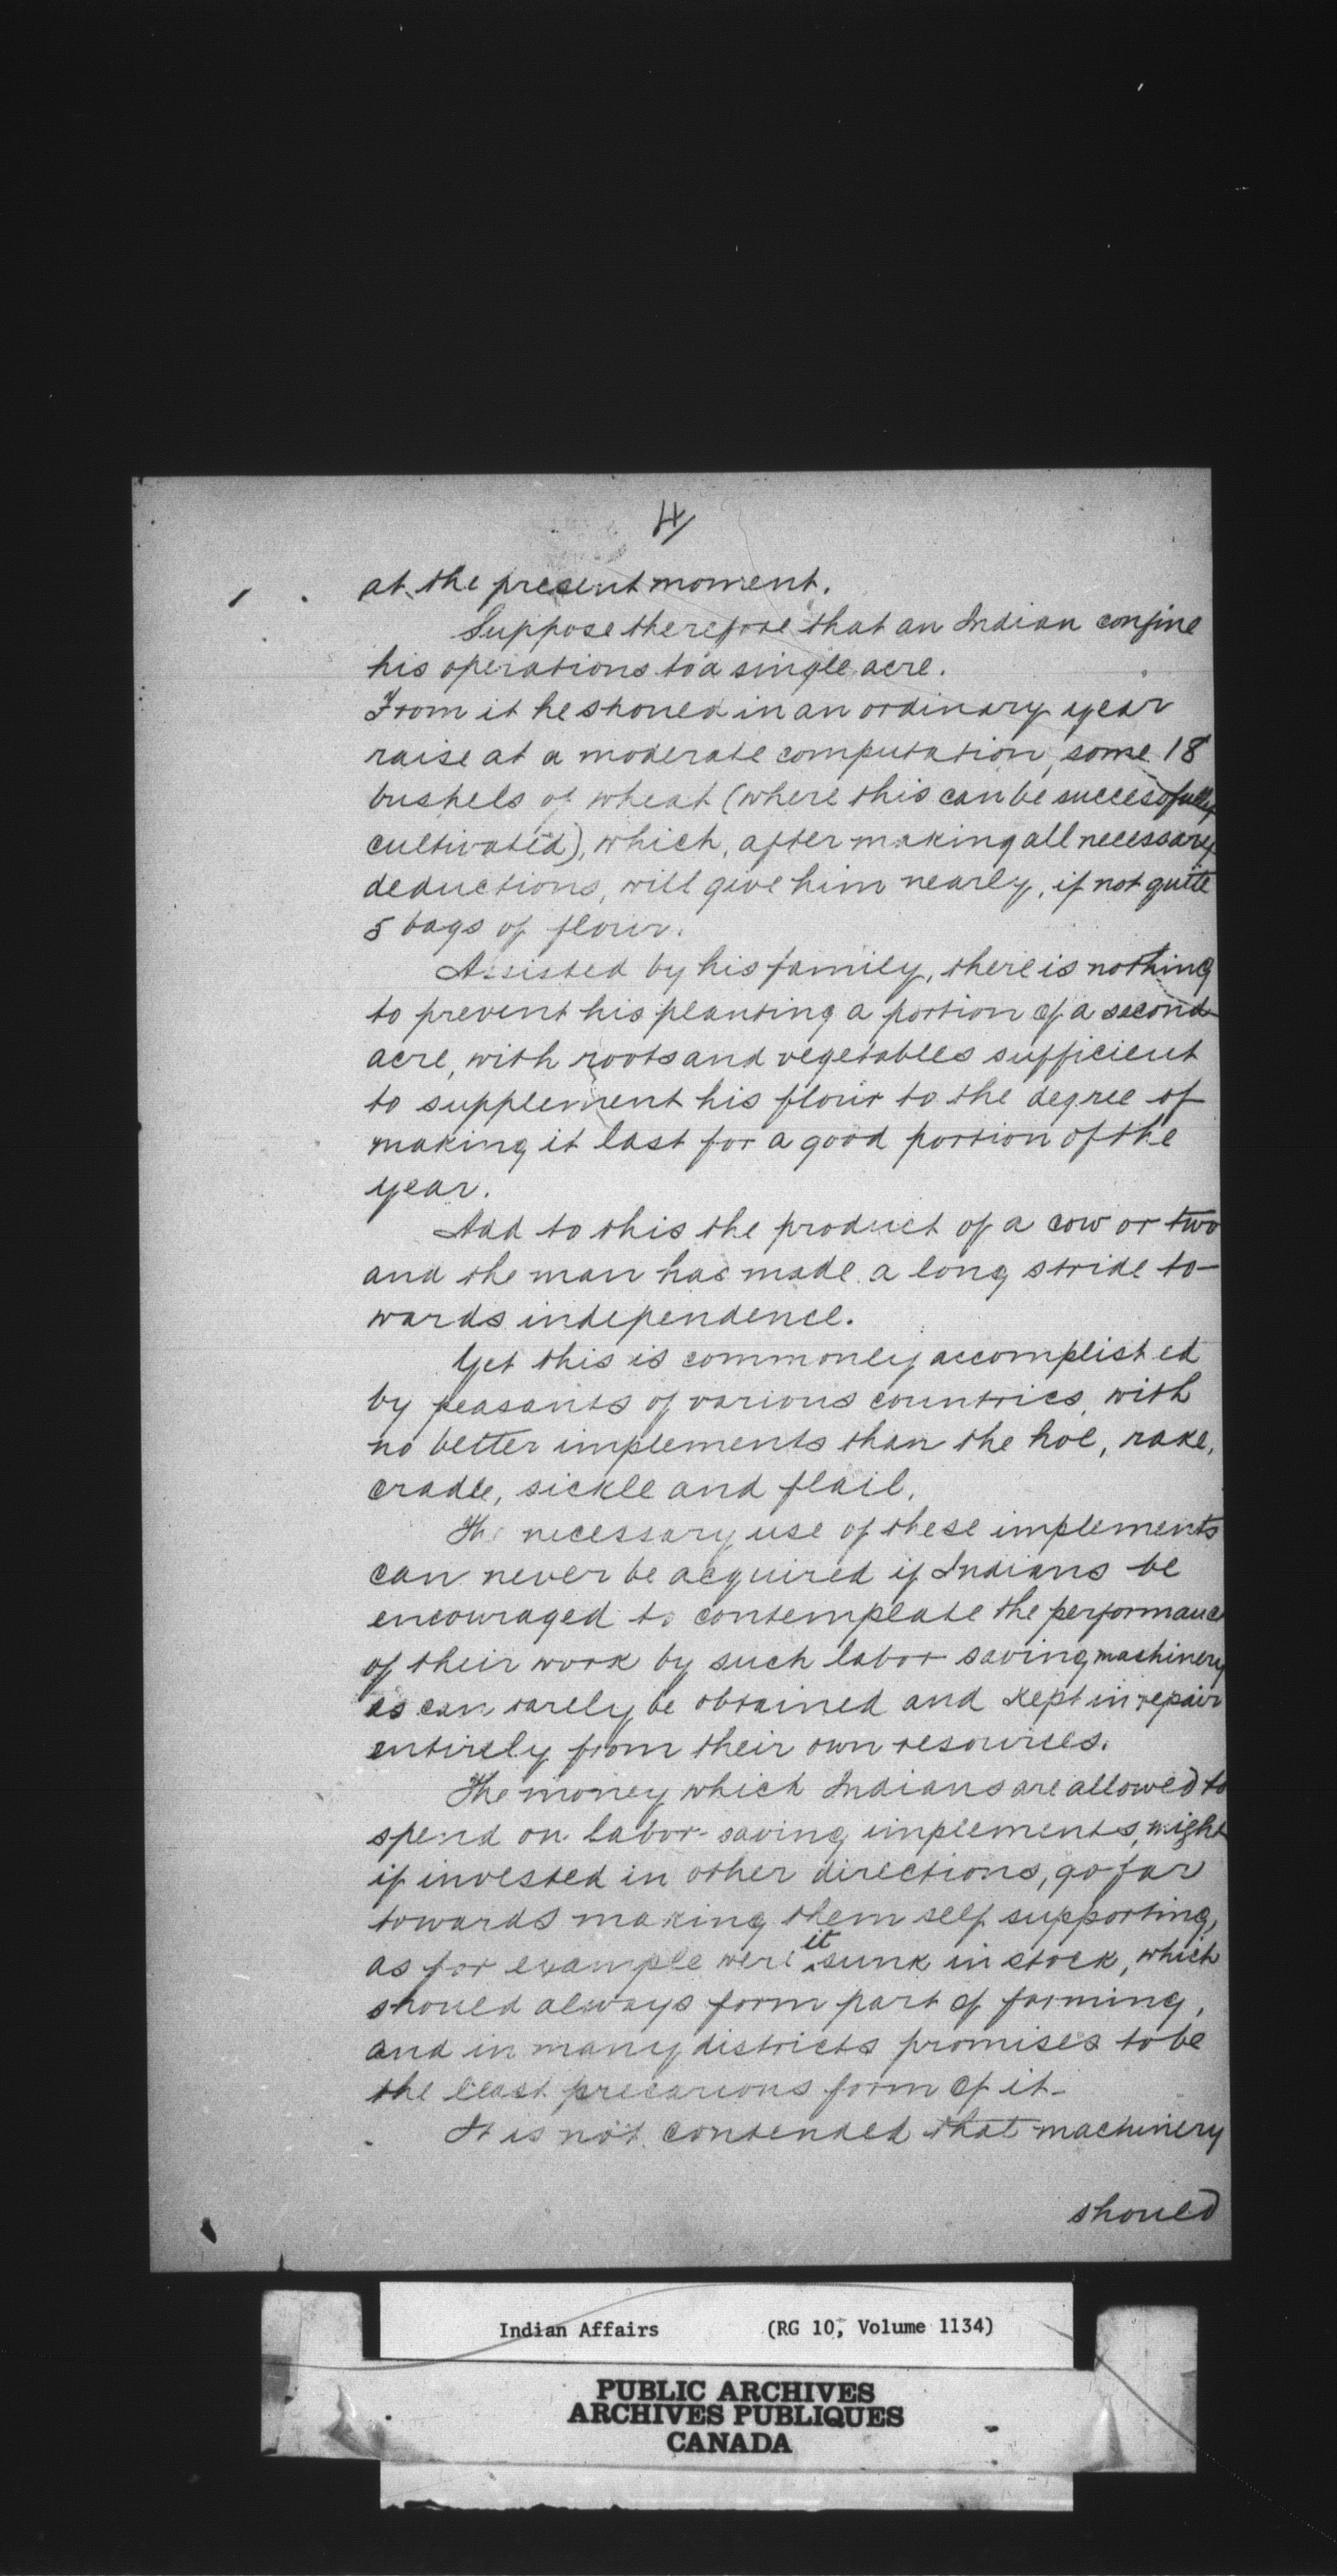 4/
at the present moment.
Suppose therefore that an Indian confine
his operations to a single acre.
From it he should in an ordinary year
raise at a moderate computation, some 18
bushels of wheat (where this can be successfully
cultivated), which, after making all necessary
deductions, will give him nearly, if not quite
5 bags of flour.
Assisted by his family, there is nothing
to prevent his planting a portion of a second
acre, with roots and vegetables sufficient
to supplement his flour to the degree of
making it last for a good portion of the
year.
Add to this the product of a cow or two
and the man has made a long stride to-
wards independence.
Yet this is commonly accomplished
by peasants of various countries, with
no better implements than the hoe, rake,
cradle, sickle and flail.
The necessary use of these implements
can never be acquired if Indians be
encouraged to contemplate the performance
of their work by such labor saving machinery
as can rarely be obtained and kept in repair
entirely from their own resources.
The money which Indians are allowed to
spend on labor-saving implements, might
if invested in other directions, go far
towards making them self supporting,
as for example were it sunk in stock, which
should always form part of farming,
and in many districts promises to be
the least precarious form of it-
It is not contended that machinery
should
Indian Affairs (RG 10, Volume 1134)
PUBLIC ARCHIVES
ARCHIVES PUBLIQUES
CANADA